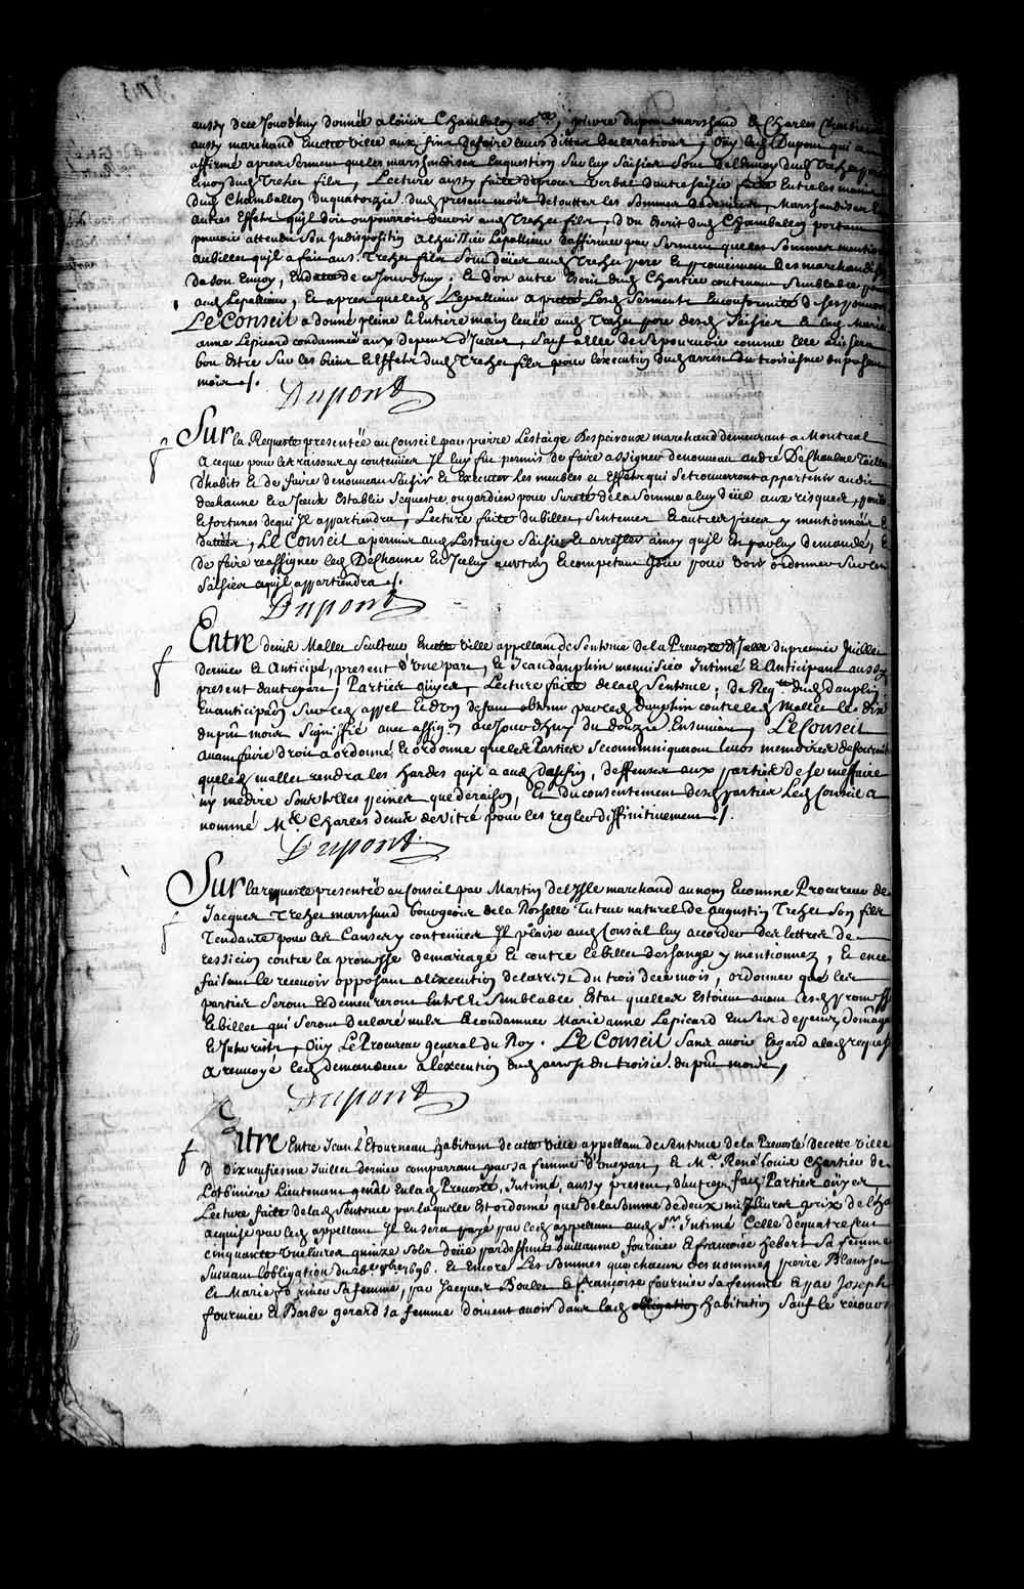 aussy de ce Jourdhuy donnée a louis Chambalon no.re, pierre dupont marchand & Charles Chartier
aussy marchand En cette ville aux fins de faire leurs dittes declarations, Oüy led Dupont qui a
affirmé apres serment que les marchandises En question sur luy saisies sont de l'envoy dud Trehet pere
Envoy dud Trehet fils, Lecture aussy faite du procez verbal d'autre saisie faite Entre les mains
dud Chamballon du quatorzie. dud present mois de touttes les sommes de deniers, Marchandises &
autres Effets qu'Il doit ou pourroit devoir aud Trehet fils, d'Un Ecrit dud Chamballon portant
pouvoir attendu son Indisposition a l'huissier Lepallieur d'affirmer par serment que les sommes mention
au billet qu'Il a fait aud. Trehet fils sont deües aud Trehet pere & proviennent des marchandises
de son Envoy, En datte de ce Jourdhuy. & d'Un autre Ecrit dud Chartier contenant semblable
aud Lepallieur, & apres que led Lepallieur a presté Lesd serments En conformité desd pouvoirs
Le Conseil a donné pleine & Entiere main levée aud Trehet pere desd saisies & lad Marie
anne Lepicard condamnée aux depens d'Icelles, sauf a Elle de se pourvoir comme Elle avisera
bon Estre sur les biens & Effets dud Trehet fils pour l'execution dud arrest du troisiesme du present
mois ./.
Dupont
Sur la Requeste presentée au Conseil par pierre Lestaige Despeiroux marchand demeurant a Montreal
A ce que pour les raisons y contenües Il luy fut permis de faire assigner de nouveau andré DeChaulne Tailleur
d'habits & de faire de nouveau saisir & Executer les meubles et Effets qui se trouveront appartenir aud
dechaune & a Iceux Establir sequestre ou gardien pour sureté de la somme a luy deüe aux risques, perils
& fortunes de qui Il appartiendra, Lecture faite du billet, sentences & autres pieces y mentionnées &
dattées, Le Conseil a permis aud Lestaige saisir & arrester ainsy qu'Il Est par luy demandé, &
de faire reassigner led DeChaune & Iceluy a certain & competant Jour pour voir ordonner sur les
saisies a qu'Il appartiendra ./.
Dupont
Entre denis Mallet sculteur En cette ville appellant de sentence de la Prevosté d'Icelle du premier Juillet
dernier & Anticipé, present d'Une part, & Jean dauphin menuisier Intimé & Anticipant aussy
present d'autre part, Parties oüyes, Lecture faite de lad sentence, de Req.te dud dauphin
En anticipāon sur led appel & d'Un defaut obtenu par led dauphin contre led Mallet le dix
du pnt mois signiffié avec assig.on a ce Jourdhuy du douze Ensuivant, Le Conseil
avant faire droit a ordonné & ordonne que les Parties se communiqueront leurs memoires de fourniture
que led mallet rendra les hardes qu'Il a aud daufin, deffenses aux parties de se meffaire
ny medire sous telles peines que de raison, Et du consentement desd parties Led Conseil a
nommé M.e Charles denis de Vitré pour les regler diffinitivement ./.
Dupont
Sur la requeste presentée au Conseil par Martin de l'Isle marchand au nom & comme Procureur de
Jacques Trehet marchand bourgeois de la Rochelle Tuteur naturel de Augustin Trehet son fils
Tendante pour les Causes y contenües Il plaise aud Conseil luy accorder des lettres de
rescision contre la promesse de mariage & contre le billet deschange y mentionnez, & en ce
faisant le recevoir opposant a l'execution de l'arrest du trois de ce mois, ordonner que les
parties seront & demeureront En tel & semblable Estat quelles Estoient avant lesd promesse
& billet qui seront declaré nuls & condamner Marie anne Lepicard En tous depens, domages
& Interests, Oüy Le Procureur general du Roy. Le Conseil sans avoir Egard a lad requeste
A renvoyé led demandeur a l'execution dud arrest du troisie. du pnt mois,
Dupont
Entre Entre Jean L'Etourneau habitant de cette ville appellant de sentence de la Prevosté de cette ville
d dixneufiesme Juillet dernier comparrant par sa femme d'Une part, & M.e René louis Chartier de
Lotbiniere Lieutenant genal En lad Prevosté, Intimé, aussy present, d'autre part, Parties oüyes
Lecture faite de lad sentence par laquelle Est ordonné que de la somme de deux mil livres prix de l'ha
acquise par led appellant Il En sera payé par led appellant aud S.r Intimé Celle de quatre cent
cinquante Une livres quinze sols deüe par deffunts Guillaume fournier & francoise hebert sa femme
suivant l'obligation du 28.e 9bre 1696. & Encore Les sommes que chacun des nommés pierre Blanchet
& Marie fournier sa femme, par Jacques Boulet & françoise fournier sa femme & par Joseph
fournier & Barbe gerard sa femme doivent avoir dans lad obligation habitation sauf le recours